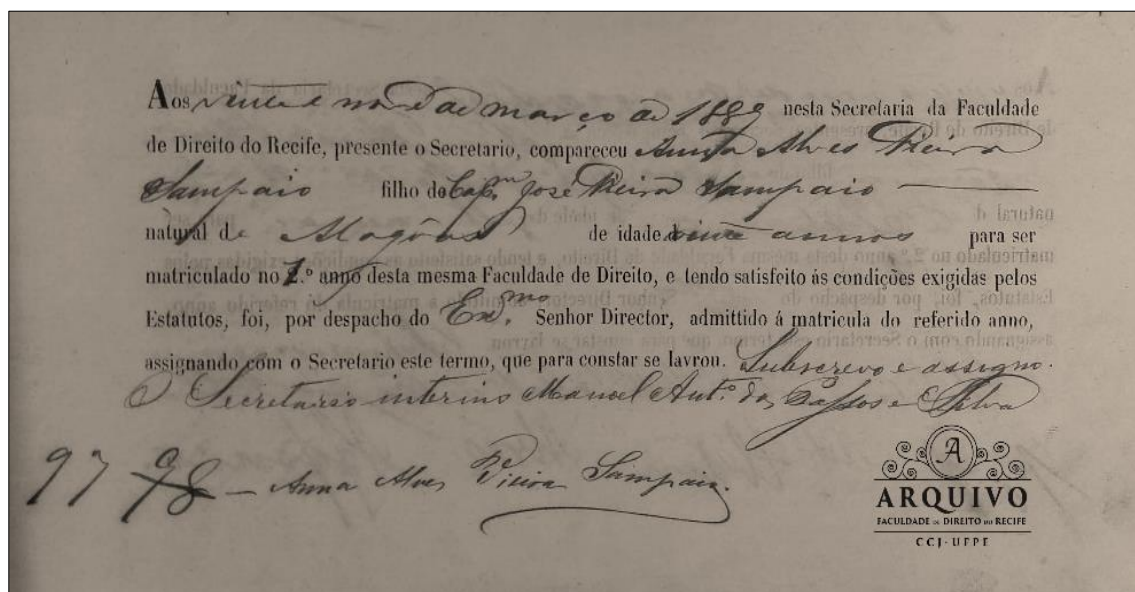 Aos vinte e nove de março de 1889 nesta Secretaria da Faculdade
de Direito do Recife, presente o Secretario, compareceu Anna Alves Vieira
Sampaio filho do Capm. José Vieira Sampaio
natural de Alagôas de idade de vinte annos para ser
matriculado no 1.º anno desta mesma Faculdade de Direito, e tendo satisfeito ás condições exigidas pelos
Estatutos, foi, por despacho do Exmo. Senhor Director, admittido á matricula do referido anno,
assignando com o Secretario este termo, que para constar se lavrou. Subscrevo e assigno.
O Secretario interino Manoel Antº. dos Passos e Silva
97 98 — Anna Alves Vieira Sampaio.
A
ARQUIVO
FACULDADE DE DIREITO DO RECIFE
CCJ-UFPE